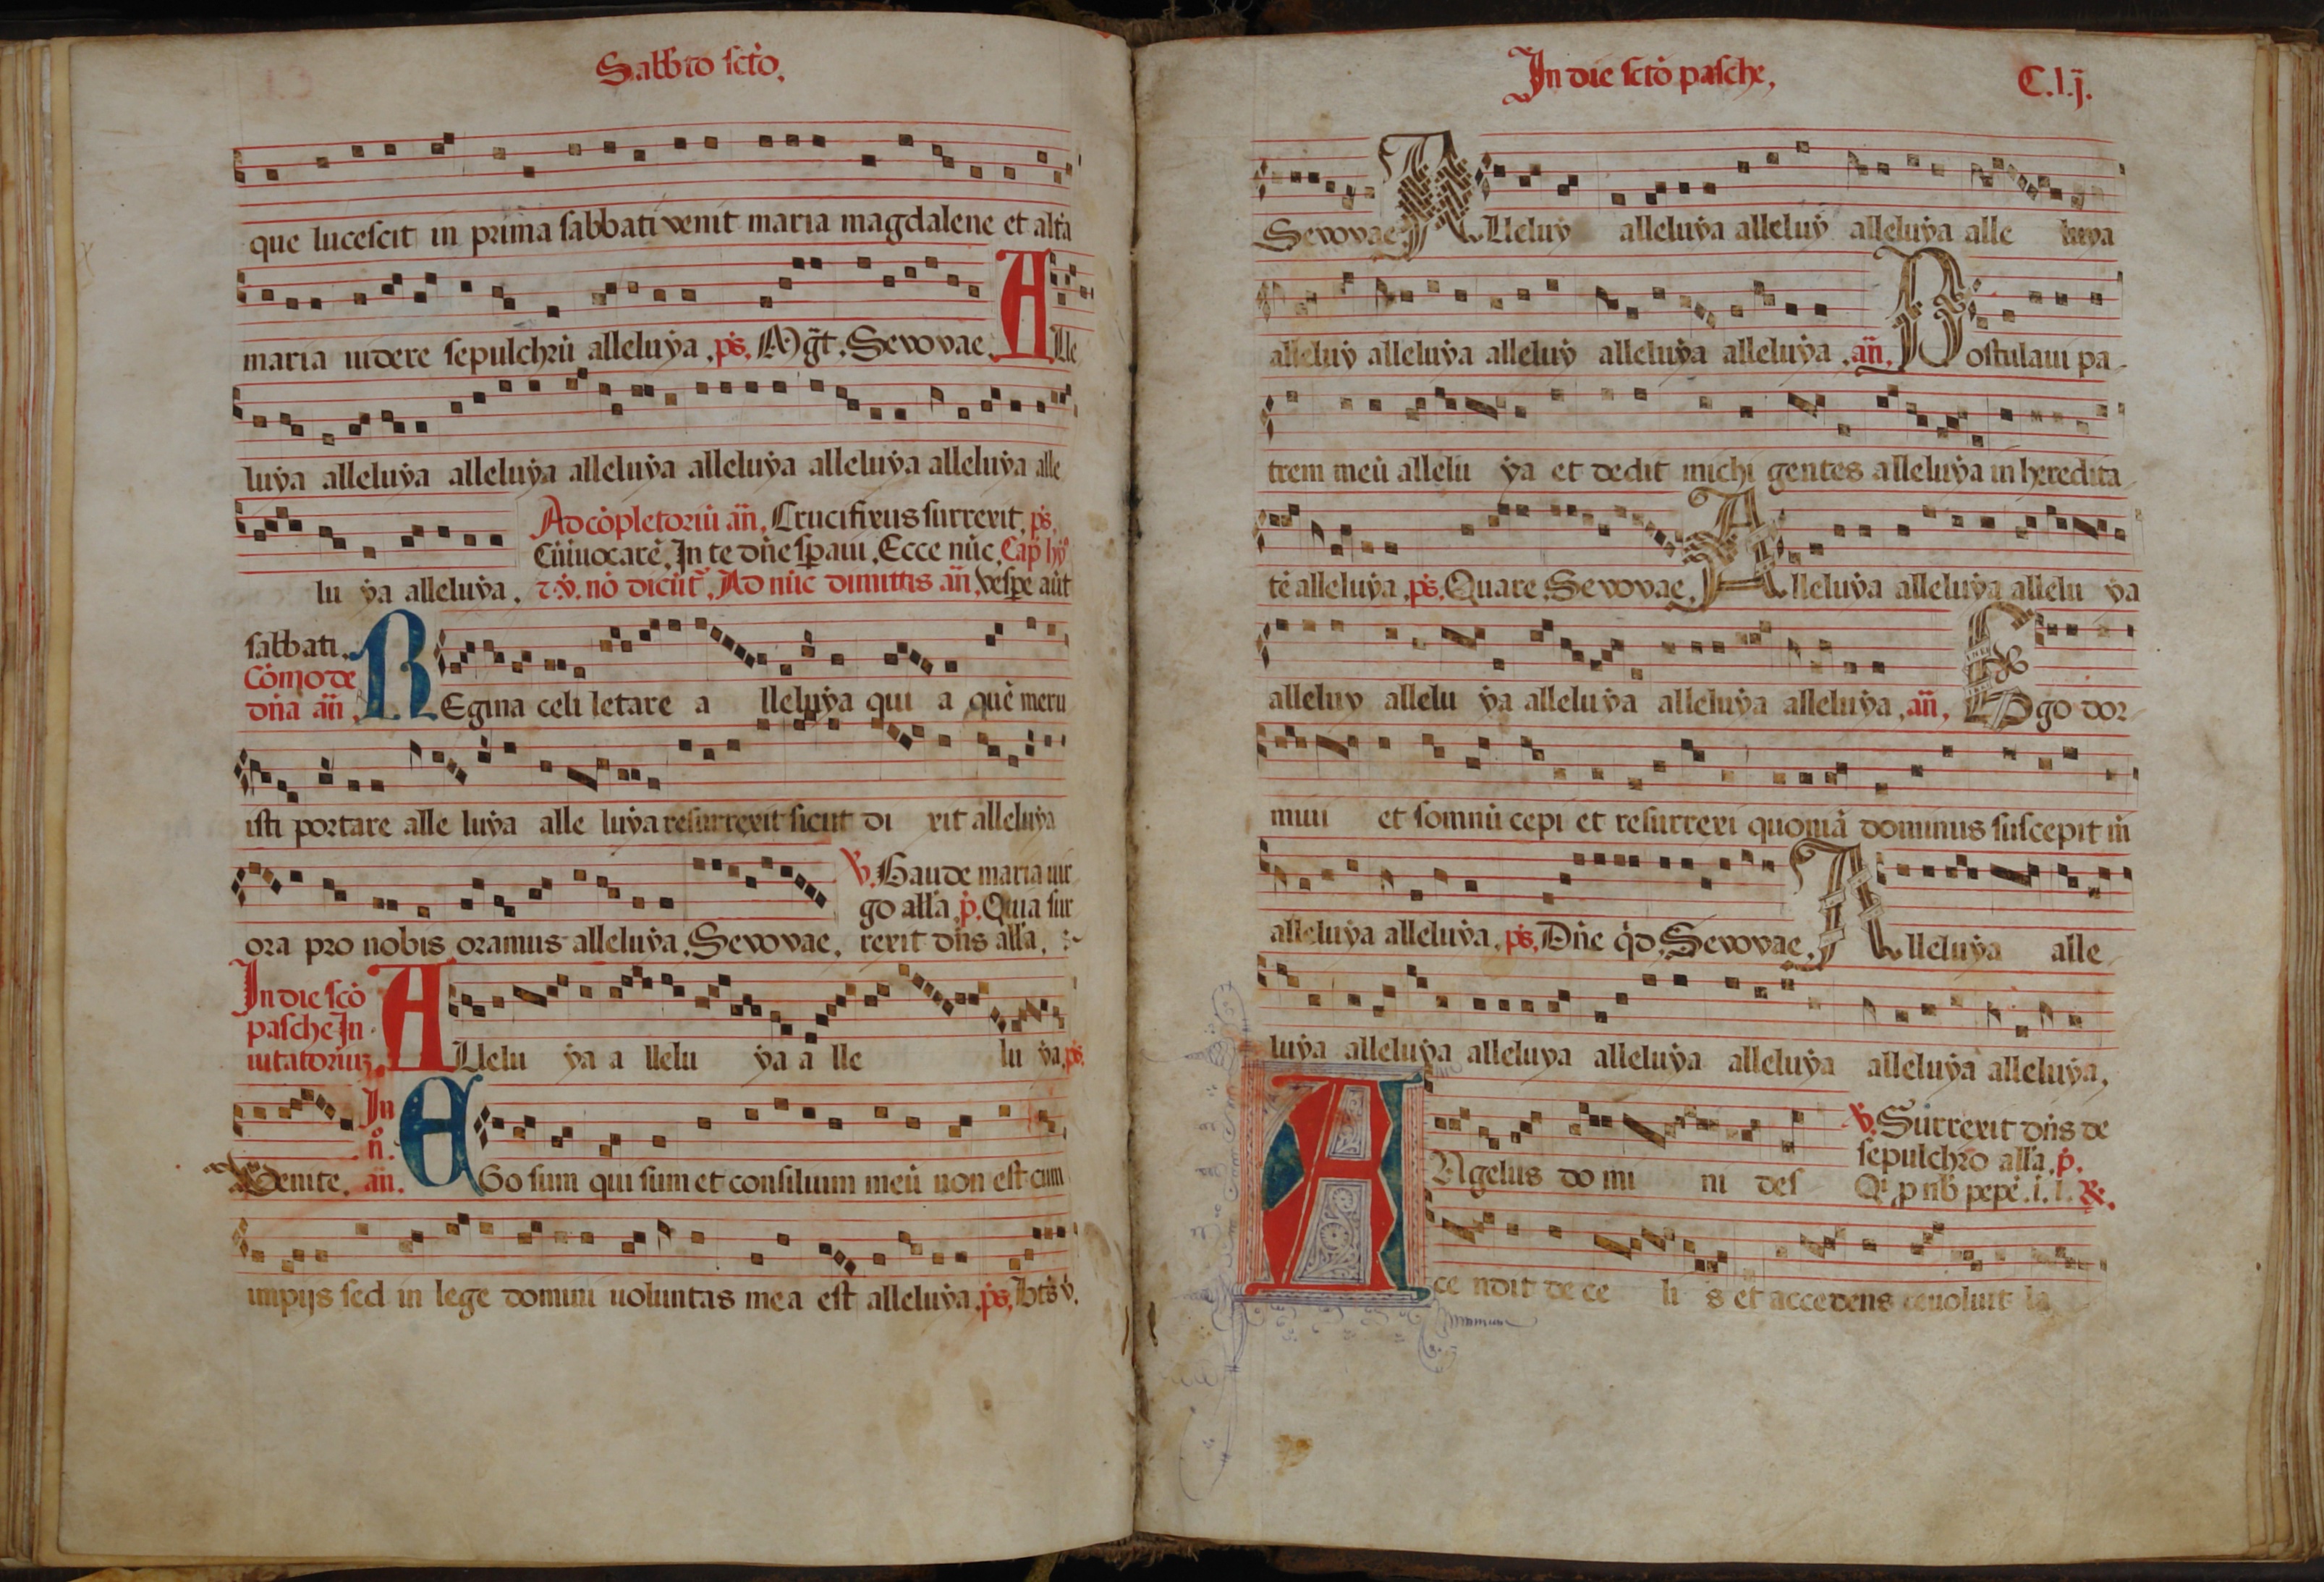 Sabbto scto.
que lucescit in prima sabbati venit maria magdalene et alta
maria uidere sepulchrū alleluya .ps. Mgt. Sevovae. Alle
luya alleluya alleluya alleluya alleluya alleluya alleluya alle
lu ya alleluya.
Ad cōpletoriū añ. Crucifixus surrexit. ps.
Cū īuocarē. In te dñe speraui. Ecce nūc. Cap hȳ
⁊ v̇. nō dicūt̄. Ad nūc dimittis añ. vespe aūt
sabbati.
Cōmo de
dña añ.
REgina celi letare a lleluya qui a quē meru
isti portare alle luya alle luya resurrexit sicut di xit alleluya
ora pro nobis oramus alleluya. Sevovae.
v̇. Gaude maria uir
go alla. p̄. Quia sur
rexit dñs alla.
In die scō
pasche In
uitatoriuz
ALlelu ya a llelu ya a lle lu ya. ps.
Venite.
In
n̊.
añ.
EGo sum qui sum et consilium meū non est cum
impijs sed in lege domini uoluntas mea est alleluya. ps. Bts v̇.
In die sctō pasche,
C.l.j.
Sevovae. ALleluy alleluya alleluy alleluya alle luya
alleluy alleluya alleluy alleluya alleluya .añ. Postulaui pa
trem meū allelu ya et dedit michi gentes alleluya in heredita
tē alleluya .ps. Quare Sevovae. Alleluya alleluya allelu ya
alleluy allelu ya alleluya alleluya alleluya .añ. Ego dor
miui et somnū cepi et resurrexi quoniā dominus suscepit m̄
alleluya alleluya. ps. Dñe qd. Sevovae. Alleluya alle
luya alleluya alleluya alleluya alleluya alleluya alleluya,
ANgelus do mi ni des
v̇. Surrexit dñs de
sepulchro alla. p̄.
Qi p nb pepē. i. l. ℟.
ce ndit de ce li s et accedens reuoluit la